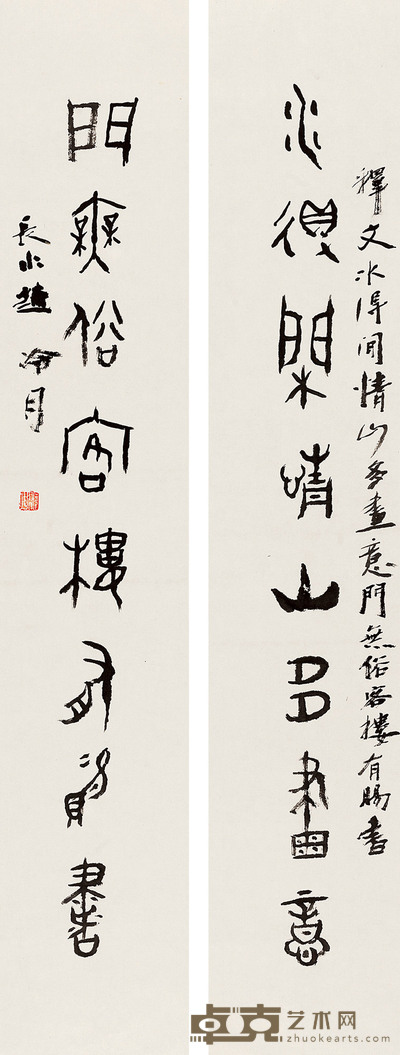 釋文水得間情山多畫意門無俗客樓有賜書
水得閑情山多畫意
門無俗客樓有賜書
長水趙冷月
卓克艺术网
zhuokearts.com